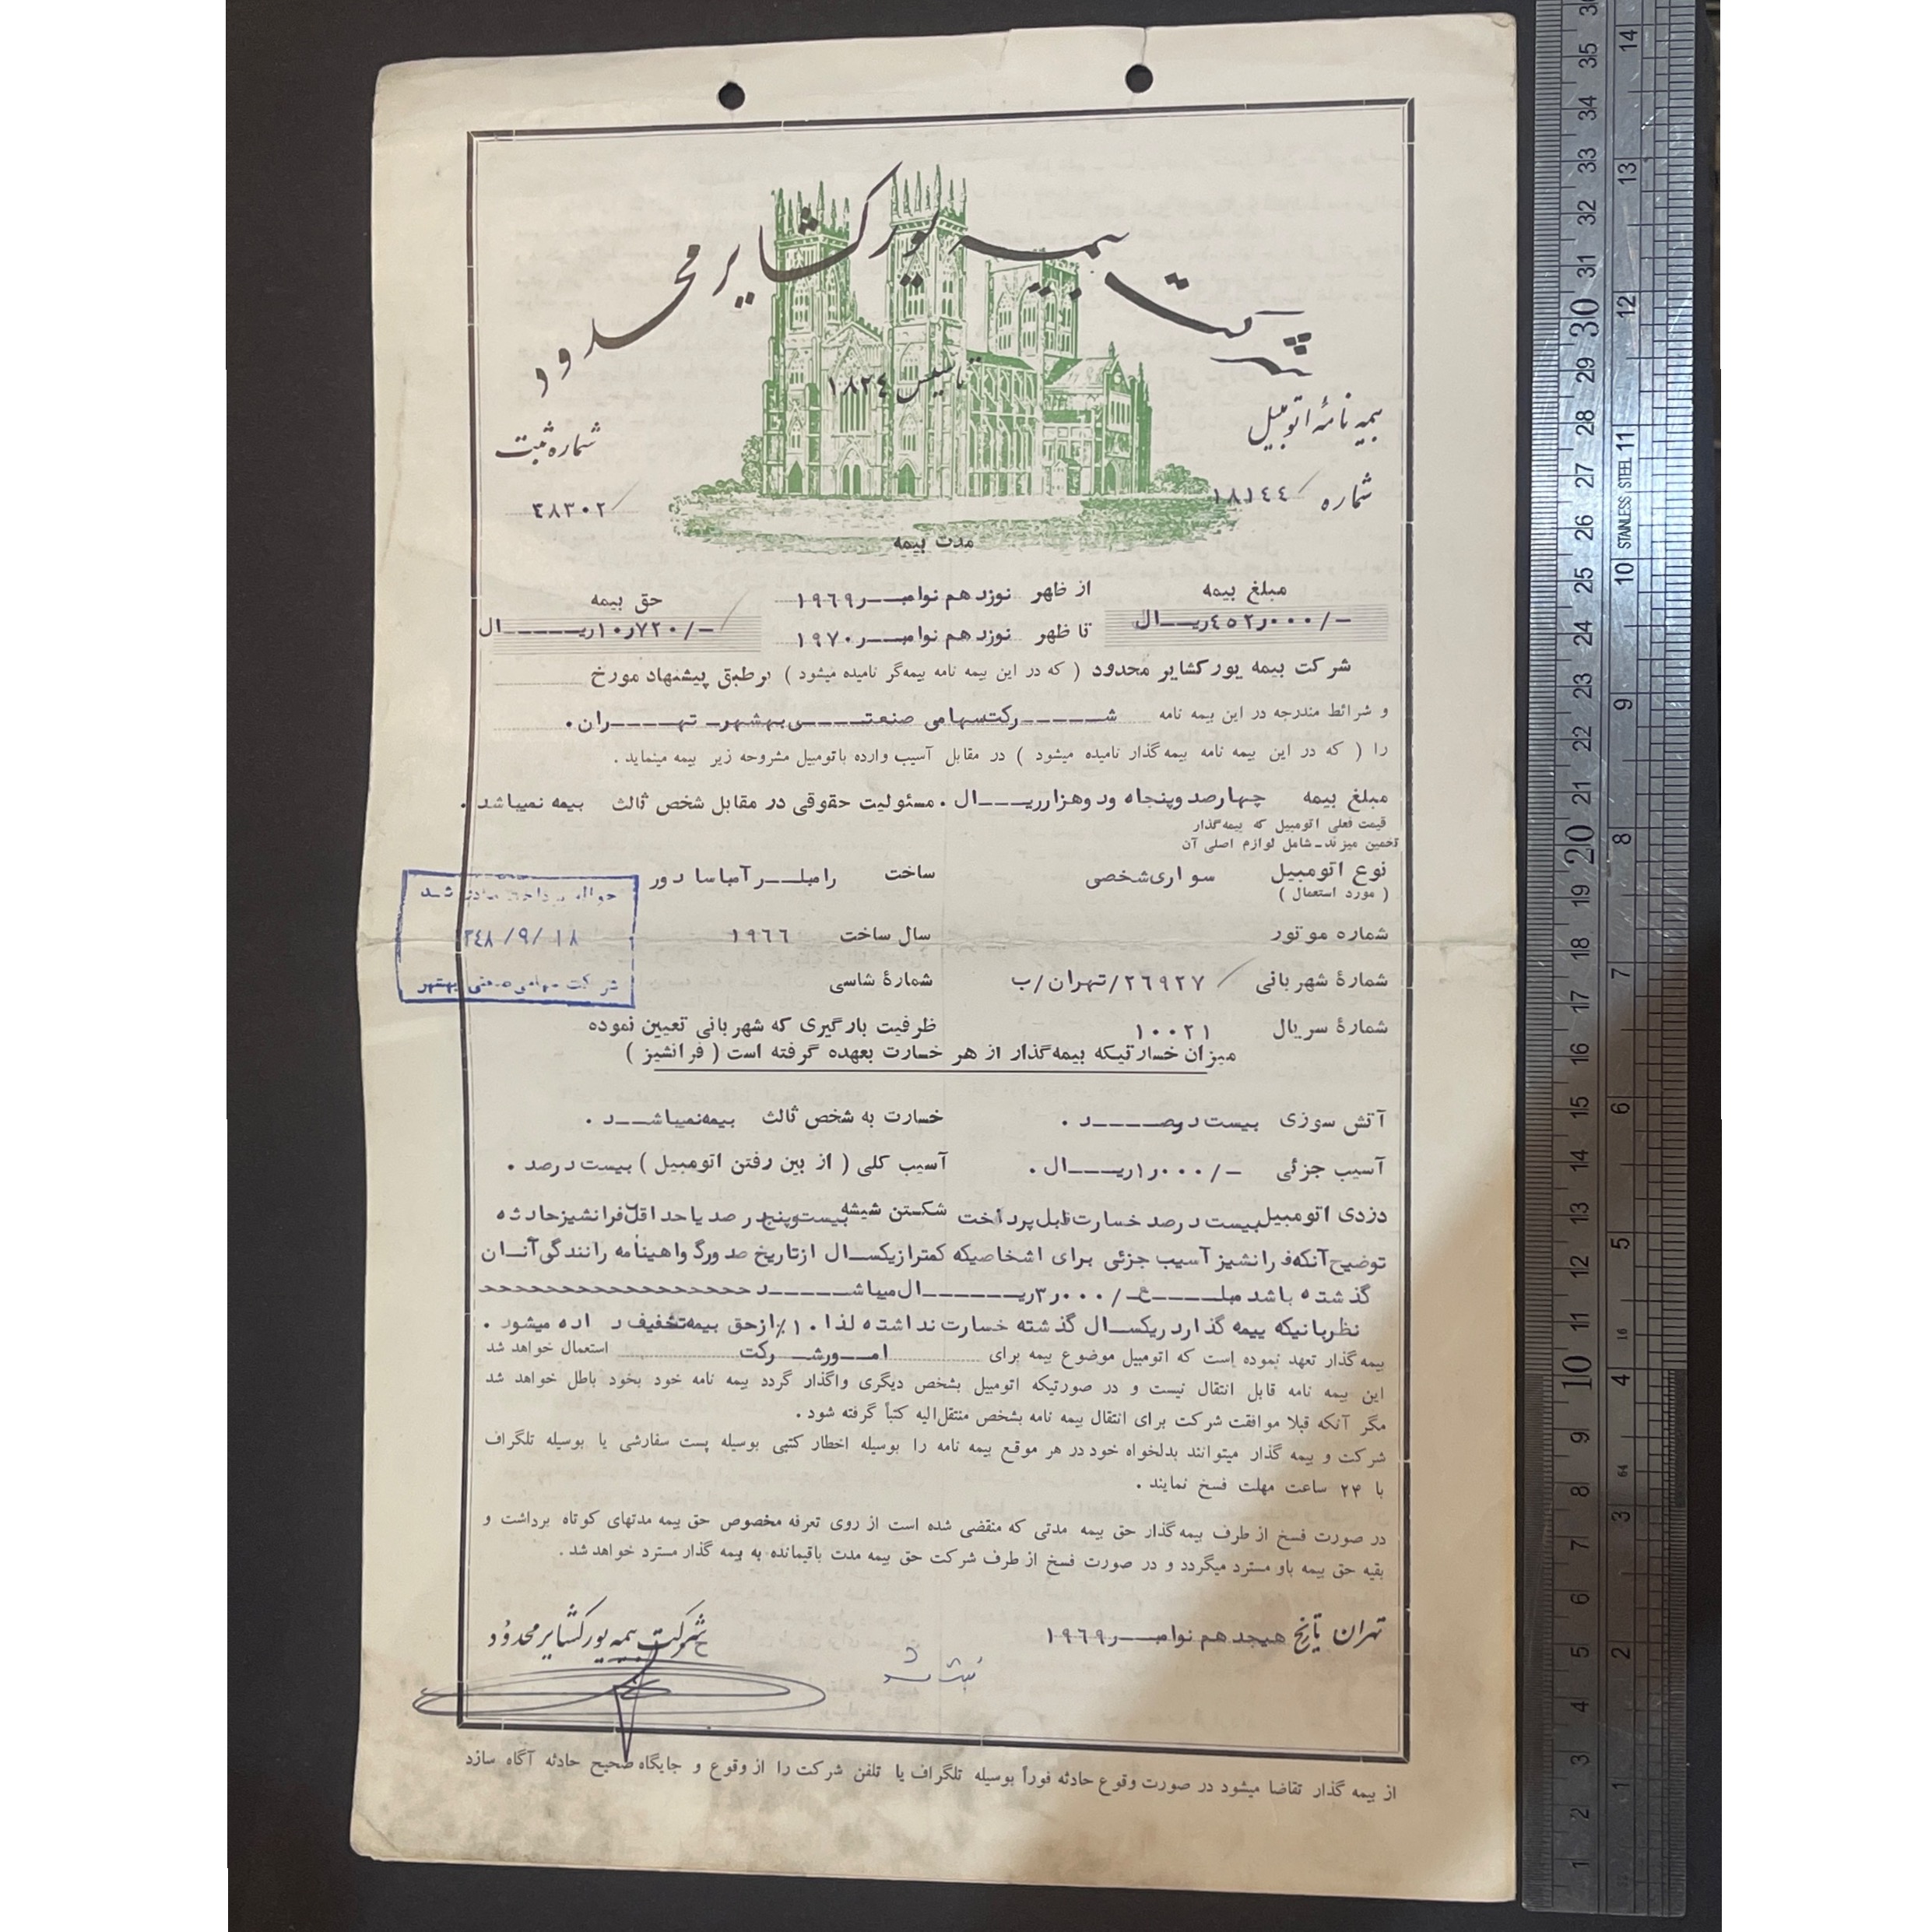 شرکت بیمه یورکشایر محدود
تاسیس ۱۸۲٤
بیمه نامهٔ اتومبیل
شماره ۱۸۱٤٤
شماره ثبت
٤۸۳۰۲
مدت بیمه
مبلغ بیمه
-/۴۵۲ر۰۰۰ ریـــال
از ظهر نوزدهم نوامبـــر ۱۹۶۹
تا ظهر نوزدهم نوامبـــر ۱۹۷۰
حق بیمه
-/۱۰ر۷۲۰ ریـــــال
شرکت بیمه یورکشایر محدود ( که در این بیمه نامه بیمه‌گر نامیده میشود ) برطبق پیشنهاد مورخ
و شرائط مندرجه در این بیمه نامه شـــــرکت سهامی صنعتـــی بهشهر ـ تهـــران.
را ( که در این بیمه نامه بیمه گذار نامیده میشود ) در مقابل آسیب وارده باتومبیل مشروحه زیر بیمه مینماید .
مبلغ بیمه چهارصد و پنجاه و دو هزار ریـــال . مسئولیت حقوقی در مقابل شخص ثالث بیمه نمیباشد .
قیمت فعلی اتومبیل که بیمه‌گذار
تخمین میزند ـ شامل لوازم اصلی آن
نوع اتومبیل سواری شخصی ساخت رامبلـــر آمباسادور
( مورد استعمال )
شماره موتور سال ساخت ۱۹۶۶
شمارهٔ شهربانی ۲۶۹۲۷/تهران/ب شمارهٔ شاسی
شمارهٔ سریال ۱۰۰۲۱ ظرفیت بارگیری که شهربانی تعیین نموده
حواله پرداخت صادر شد
۳٤۸/۹/۱۸
شرکت سهامی صنعتی بهشهر
میزان خسارتیکه بیمه‌گذار از هر خسارت بعهده گرفته است ( فرانشیز )
آتش سوزی بیست درصـــد . خسارت به شخص ثالث بیمه نمیباشـــد .
آسیب جزئی -/۱ر۰۰۰ ریـــال . آسیب کلی ( از بین رفتن اتومبیل ) بیست درصد .
دزدی اتومبیل بیست درصد خسارت قابل پرداخت شکستن شیشه بیست و پنج درصد یا حداقل فرانشیز حادثه
توضیح آنکه فرانشیز آسیب جزئی برای اشخاصیکه کمتر از یکســال از تاریخ صدور گواهینامه رانندگی آنـــان
گذشته باشد مبلـــغ -/۳ر۰۰۰ ریـــــال میباشـــــد
نظر بانیکه بیمه گذار در یکســال گذشته خسارت نداشته لذا ۱۰٪ از حق بیمه تخفیف داده میشود .
بیمه گذار تعهد نموده است که اتومبیل موضوع بیمه برای امـــور شـــرکت استعمال خواهد شد
این بیمه نامه قابل انتقال نیست و در صورتیکه اتومبیل بشخص دیگری واگذار گردد بیمه نامه خود بخود باطل خواهد شد
مگر آنکه قبلا موافقت شرکت برای انتقال بیمه نامه بشخص منتقل‌الیه کتباً گرفته شود .
شرکت و بیمه گذار میتوانند بدلخواه خود در هر موقع بیمه نامه را بوسیله اخطار کتبی بوسیله پست سفارشی یا بوسیله تلگراف
با ۲۴ ساعت مهلت فسخ نمایند .
در صورت فسخ از طرف بیمه گذار حق بیمه مدتی که منقضی شده است از روی تعرفه مخصوص حق بیمه مدتهای کوتاه برداشت و
بقیه حق بیمه باو مسترد میگردد و در صورت فسخ از طرف شرکت حق بیمه مدت باقیمانده به بیمه گذار مسترد خواهد شد .
تهران تاریخ هیجدهم نوامبـــر ۱۹۶۹
شرکت بیمه یورکشایر محدود
از بیمه گذار تقاضا میشود در صورت وقوع حادثه فوراً بوسیله تلگراف یا تلفن شرکت را از وقوع و جایگاه صحیح حادثه آگاه سازد
STAINLESS STEEL